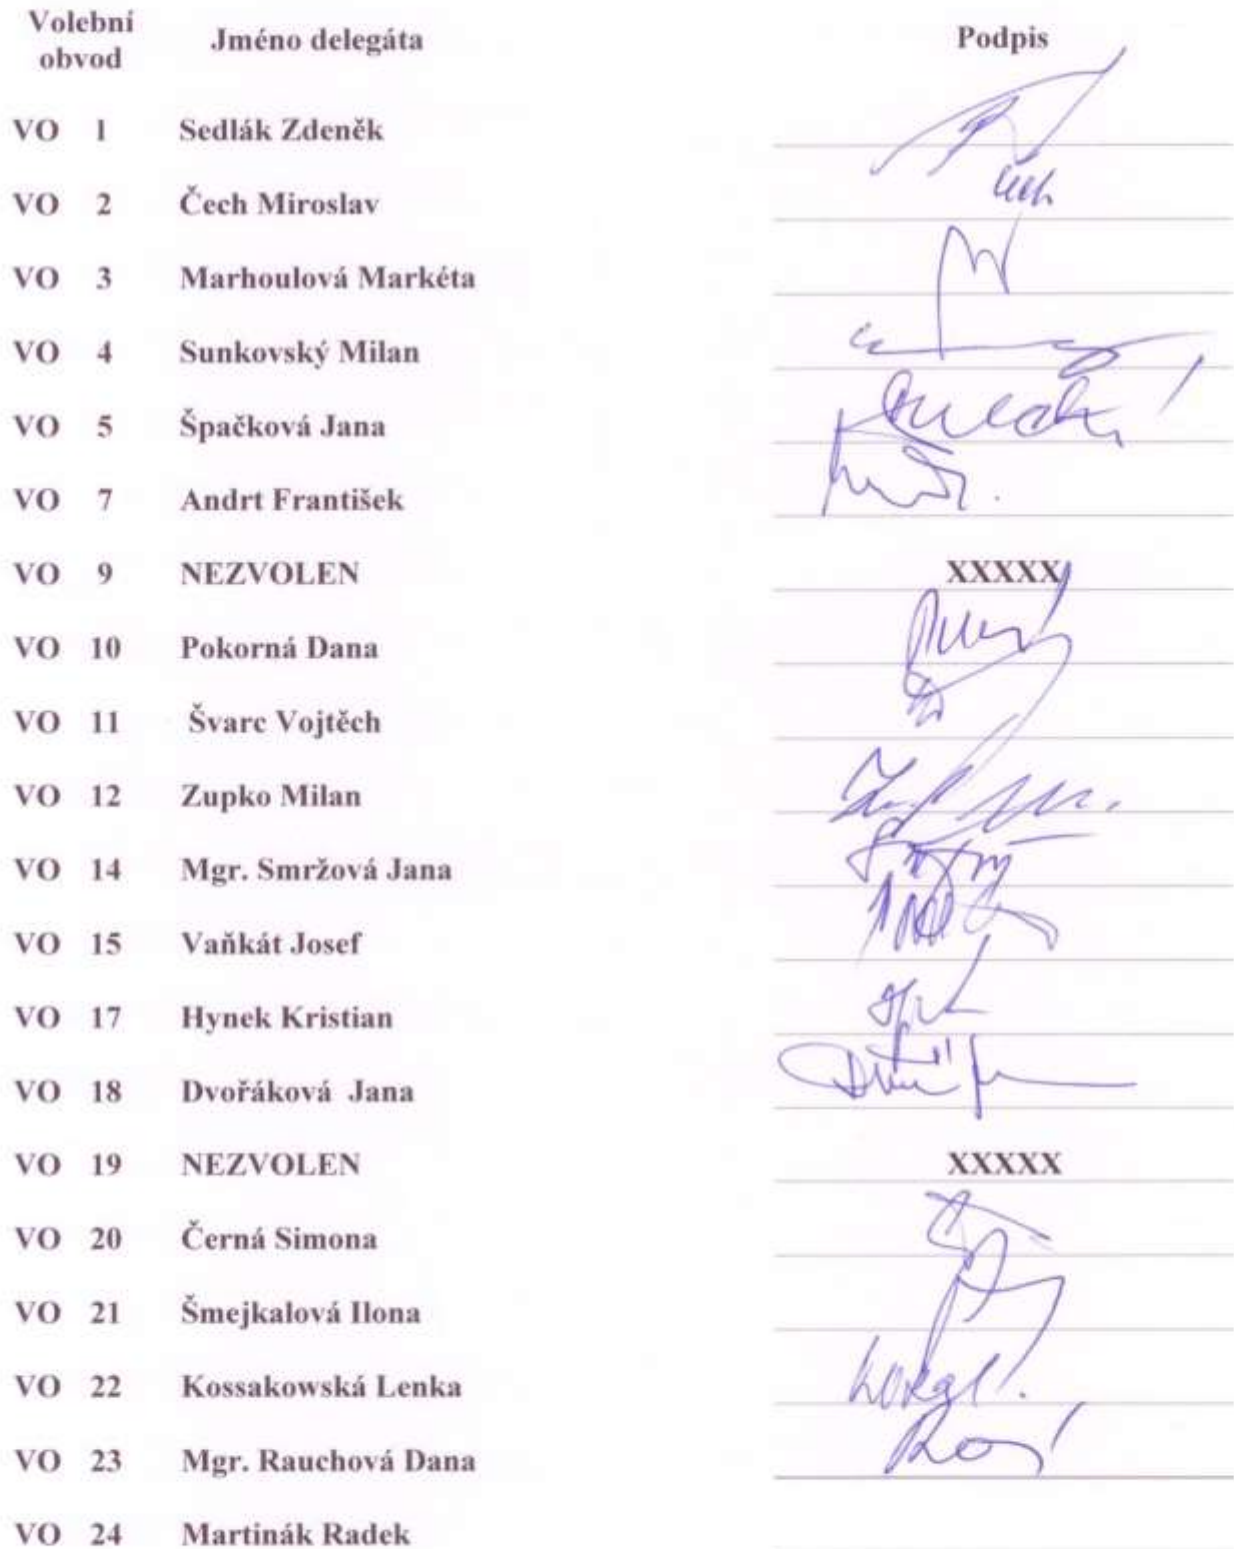 Volební obvod Jméno delegáta Podpis
VO 1 Sedlák Zdeněk
VO 2 Čech Miroslav
VO 3 Marhoulová Markéta
VO 4 Sunkovský Milan
VO 5 Špačková Jana
VO 7 Andrt František
VO 9 NEZVOLEN XXXXX
VO 10 Pokorná Dana
VO 11 Švarc Vojtěch
VO 12 Zupko Milan
VO 14 Mgr. Smržová Jana
VO 15 Vaňkát Josef
VO 17 Hynek Kristian
VO 18 Dvořáková Jana
VO 19 NEZVOLEN XXXXX
VO 20 Černá Simona
VO 21 Šmejkalová Ilona
VO 22 Kossakowská Lenka
VO 23 Mgr. Rauchová Dana
VO 24 Martinák Radek